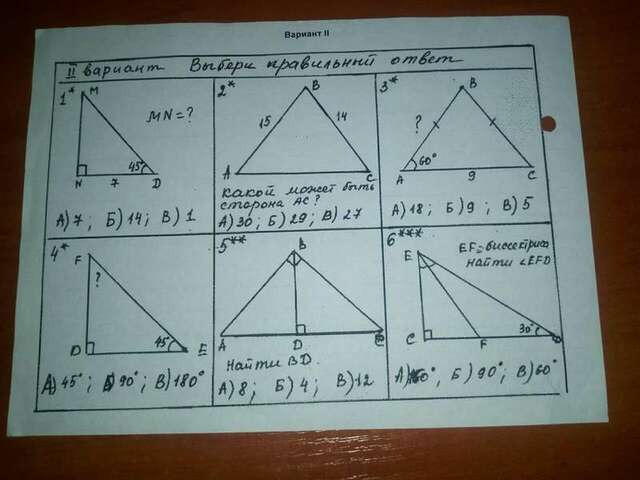 Вариант II
II вариант Выбери правильный ответ
1*
M
MN=?
45°
N 7 D
А) 7; Б) 14; В) 1
2*
B
15 14
A C
Какой может быть
сторона AC?
А) 30; Б) 29; В) 27
3*
B
?
60°
A 9 C
А) 18; Б) 9; В) 5
4*
F
?
45°
D E
А) 45°; Б) 90°; В) 180°
5**
B
A D
Найти BD.
А) 8; Б) 4; В) 12
6***
EF=биссектриса
найти ∠EFD
E
30°
C F
А) 0°, Б) 90°; В) 60°